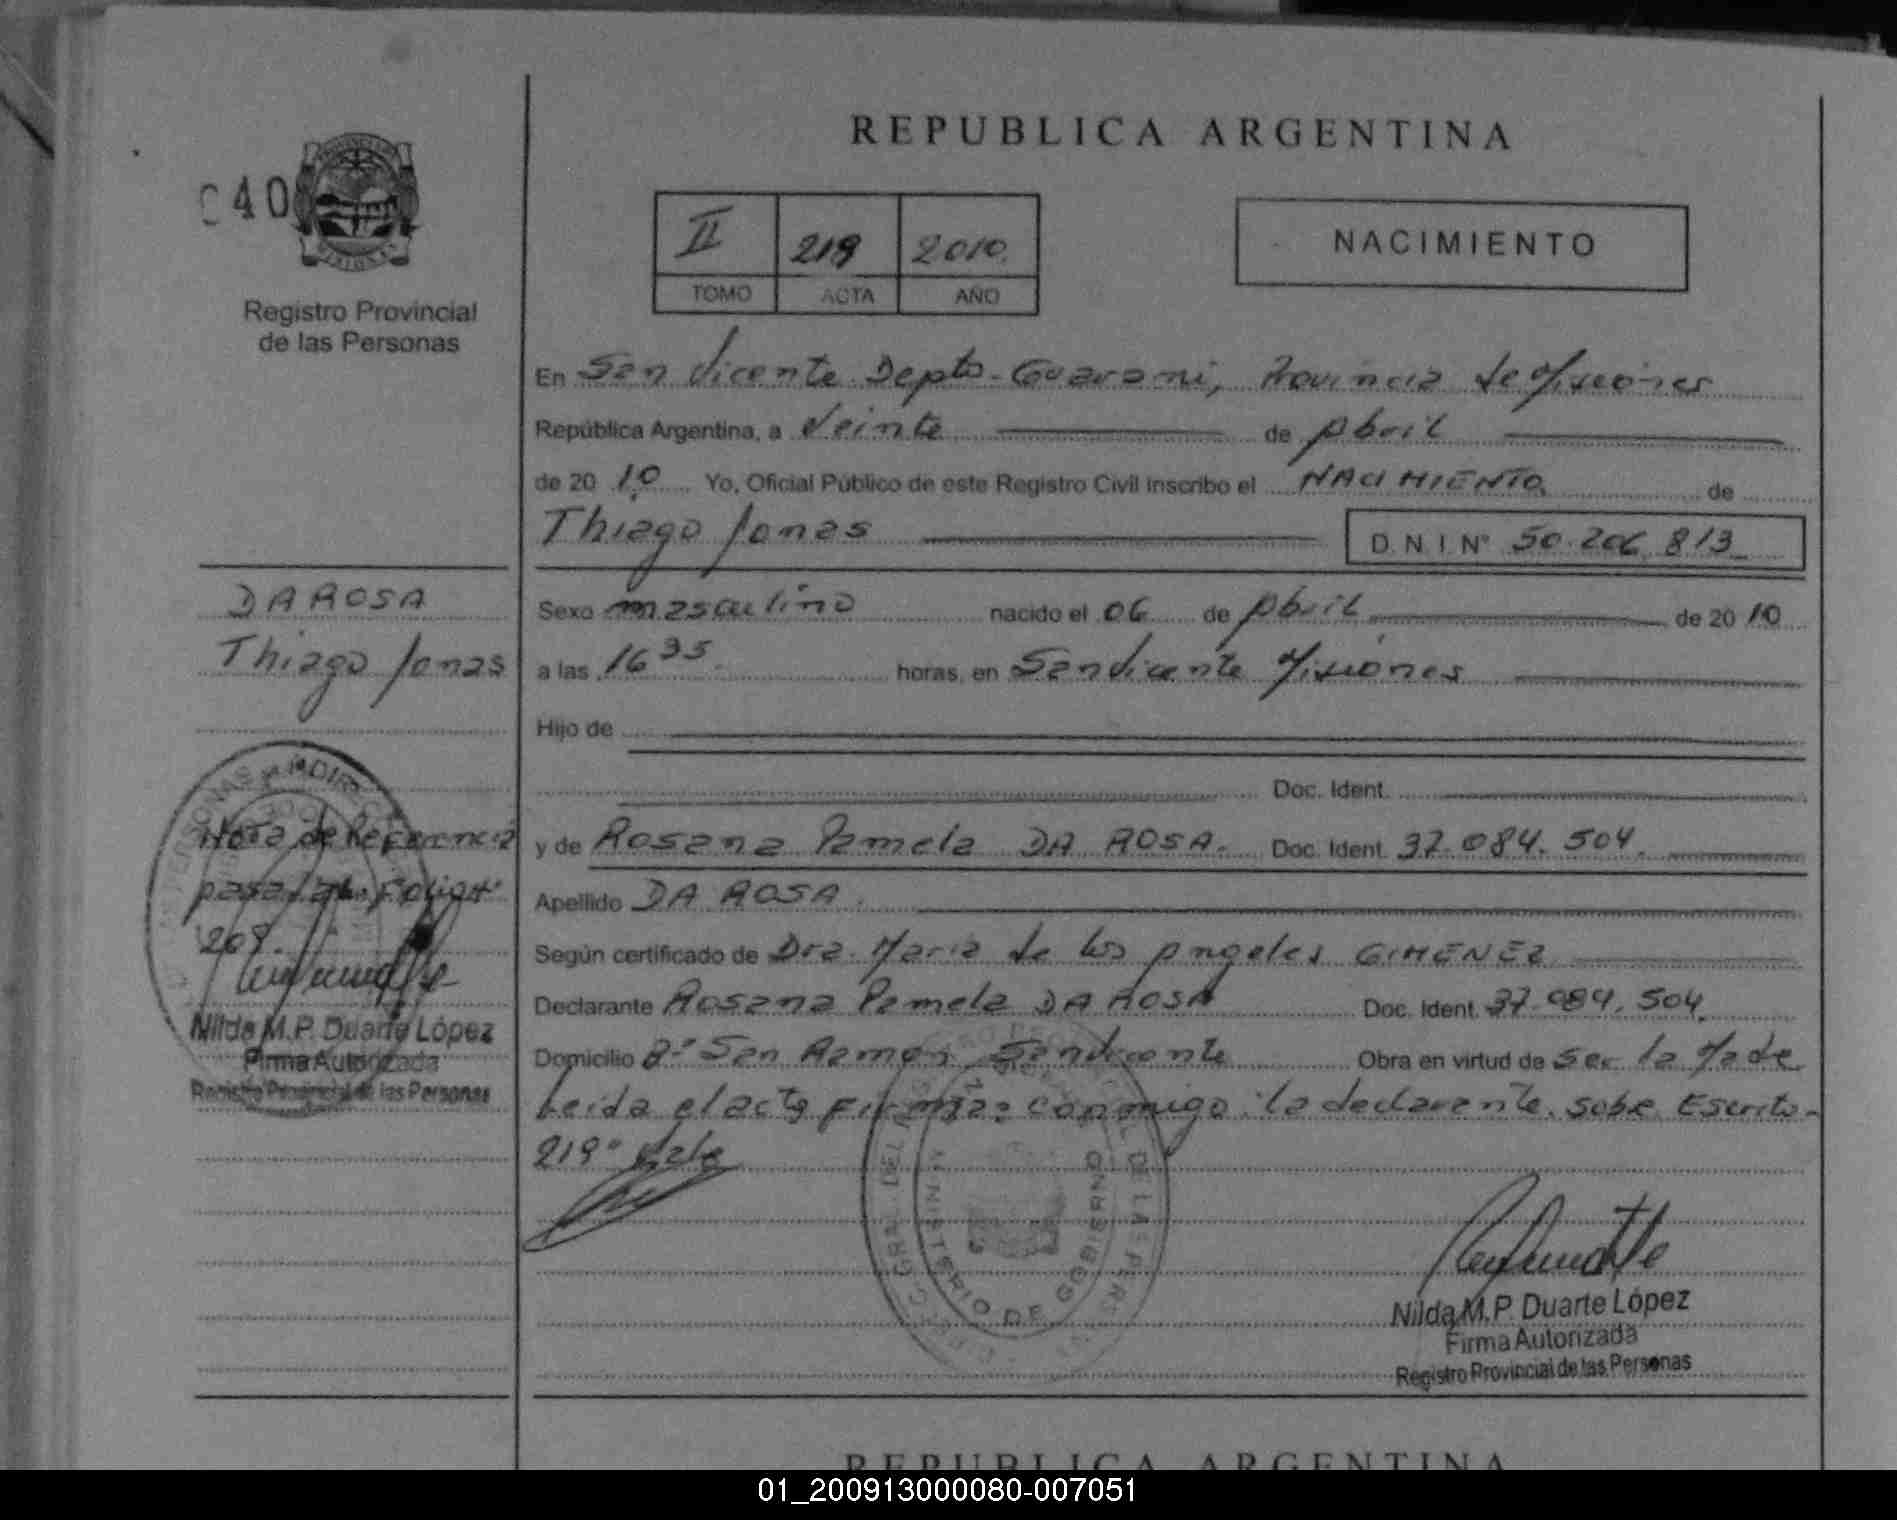 REPUBLICA ARGENTINA
040
II 219 2010.
TOMO ACTA AÑO
NACIMIENTO
Registro Provincial
de las Personas
En San Vicente Depto-Guarani, Provincia de Misiones
República Argentina, a Veinte de Abril
de 20 10 Yo, Oficial Público de este Registro Civil Inscribo el NACIMIENTO de
Thiago Jonas D.N.I. N° 50.206.813
DA ROSA
Thiago Jonas
Sexo masculino nacido el 06 de Abril de 20 10
a las 16 35 horas, en San Vicente Misiones
Hijo de
Doc. Ident.
y de Rosana Pamela DA ROSA. Doc. Ident. 37.084.504.
Apellido DA ROSA.
Según certificado de Dra. Maria de los Angeles GIMENEZ
Declarante Rosana Pamela DA ROSA Doc. Ident. 37.084.504.
Domicilio Bº San Ramon San Vicente Obra en virtud de Ser la Madre
Leida el acta firma conmigo la declarante. Sobre Escrito-
219° Vale
Nota de Referencia
pasa al Folio
209.
Nilda M.P. Duarte López
Firma Autorizada
Registro Provincial de las Personas
MINISTERIO DE GOBIERNO
Nilda M.P. Duarte López
Firma Autorizada
Registro Provincial de las Personas
REPUBLICA ARGENTINA
01_200913000080-007051